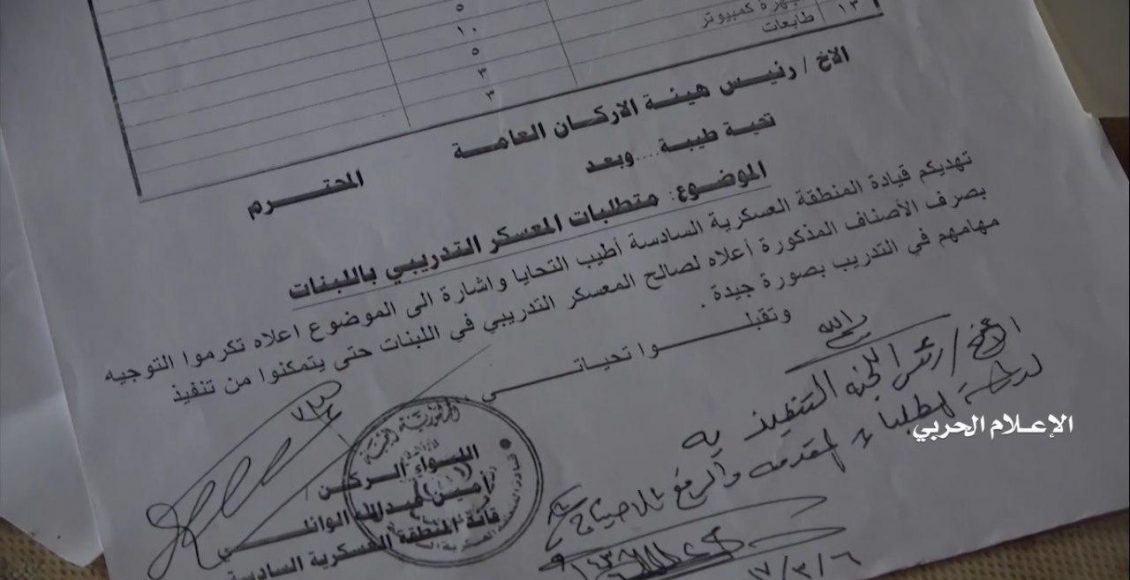 ٥
١٠
٥
٣
٣
١٣
كمبيوتر
طابعات
الاخ / رئيس هيئة الاركان العامة
المحترم
تحية طيبة .... وبعد
الموضوع: متطلبات المعسكر التدريبي باللبنات
تهديكم قيادة المنطقة العسكرية السادسة أطيب التحايا واشارة الى الموضوع اعلاه تكرموا التوجيه
بصرف الأصناف المذكورة أعلاه لصالح المعسكر التدريبي في اللبنات حتى يتمكنوا من تنفيذ
مهامهم في التدريب بصورة جيدة .
وتقبلوا تحياتي
الاخ / رئيس اللجنة التنفيذية
المقدمة والرفع بالاحتياج
اللواء الركن
أمين عبدالله الوائلي
قائد المنطقة العسكرية السادسة
الإعلام الحربي